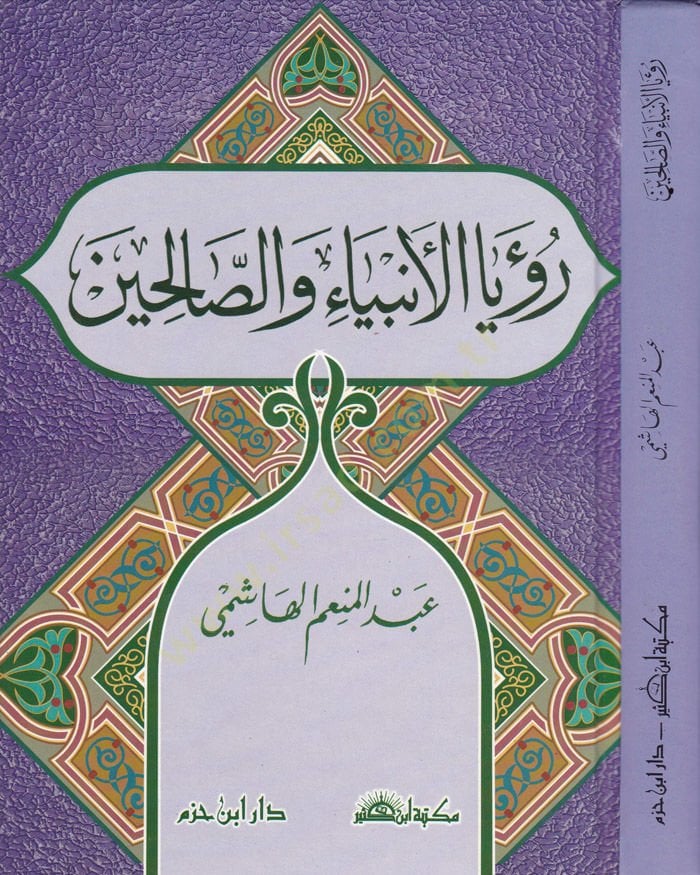 رُؤيَا الأَنبيَاءِ وَالصَّالِحِينَ
عَبد المنِعم الهَاشِميّ
مكتبة ابن كثير
دار ابن حزم
رُؤيَا الأنبيَاءِ وَالصَّالِحِينَ
عبد المنعم الهاشمي
مكتبة ابن كثير – دار ابن حزم